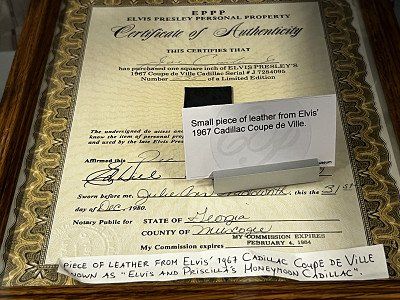 E P P P
ELVIS PRESLEY PERSONAL PROPERTY
Certificate of Authenticity
THIS CERTIFIES THAT
has purchased one square inch of ELVIS PRESLEY'S
1967 Coupe de Ville Cadillac Serial # J 7264095
Number of a Limited Edition
Small piece of leather from Elvis'
1967 Cadillac Coupe de Ville.
The undersigned do assert and
know the item of personal
and used by the late Elvis
Affirmed this
Sworn before me, Julie Ann this the 31st
day of Dec, 1980.
Notary Public for STATE OF Georgia
COUNTY OF Muscogee
MY COMMISSION EXPIRES
My Commission expires FEBRUARY 4, 1984
PIECE OF LEATHER FROM ELVIS' 1967 CADILLAC COUPE DE VILLE
KNOWN AS "ELVIS AND PRISCILLA'S HONEYMOON CADILLAC".